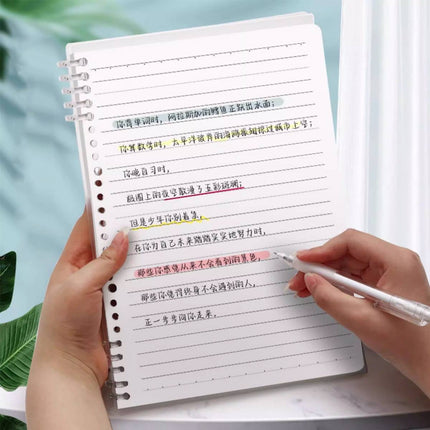 你背单词时，阿拉斯加的鳕鱼正跃出水面；
你算数学时，太平洋彼岸的海鸥振翅掠过城市上空；
你晚自习时，
极圈上的夜空散漫了五彩斑斓；
但是少年你别着急，
在你为自己未来踏踏实实地努力时，
那些你感觉从来不会看到的景色，
那些你觉得终身不会遇到的人，
正一步步向你走来。